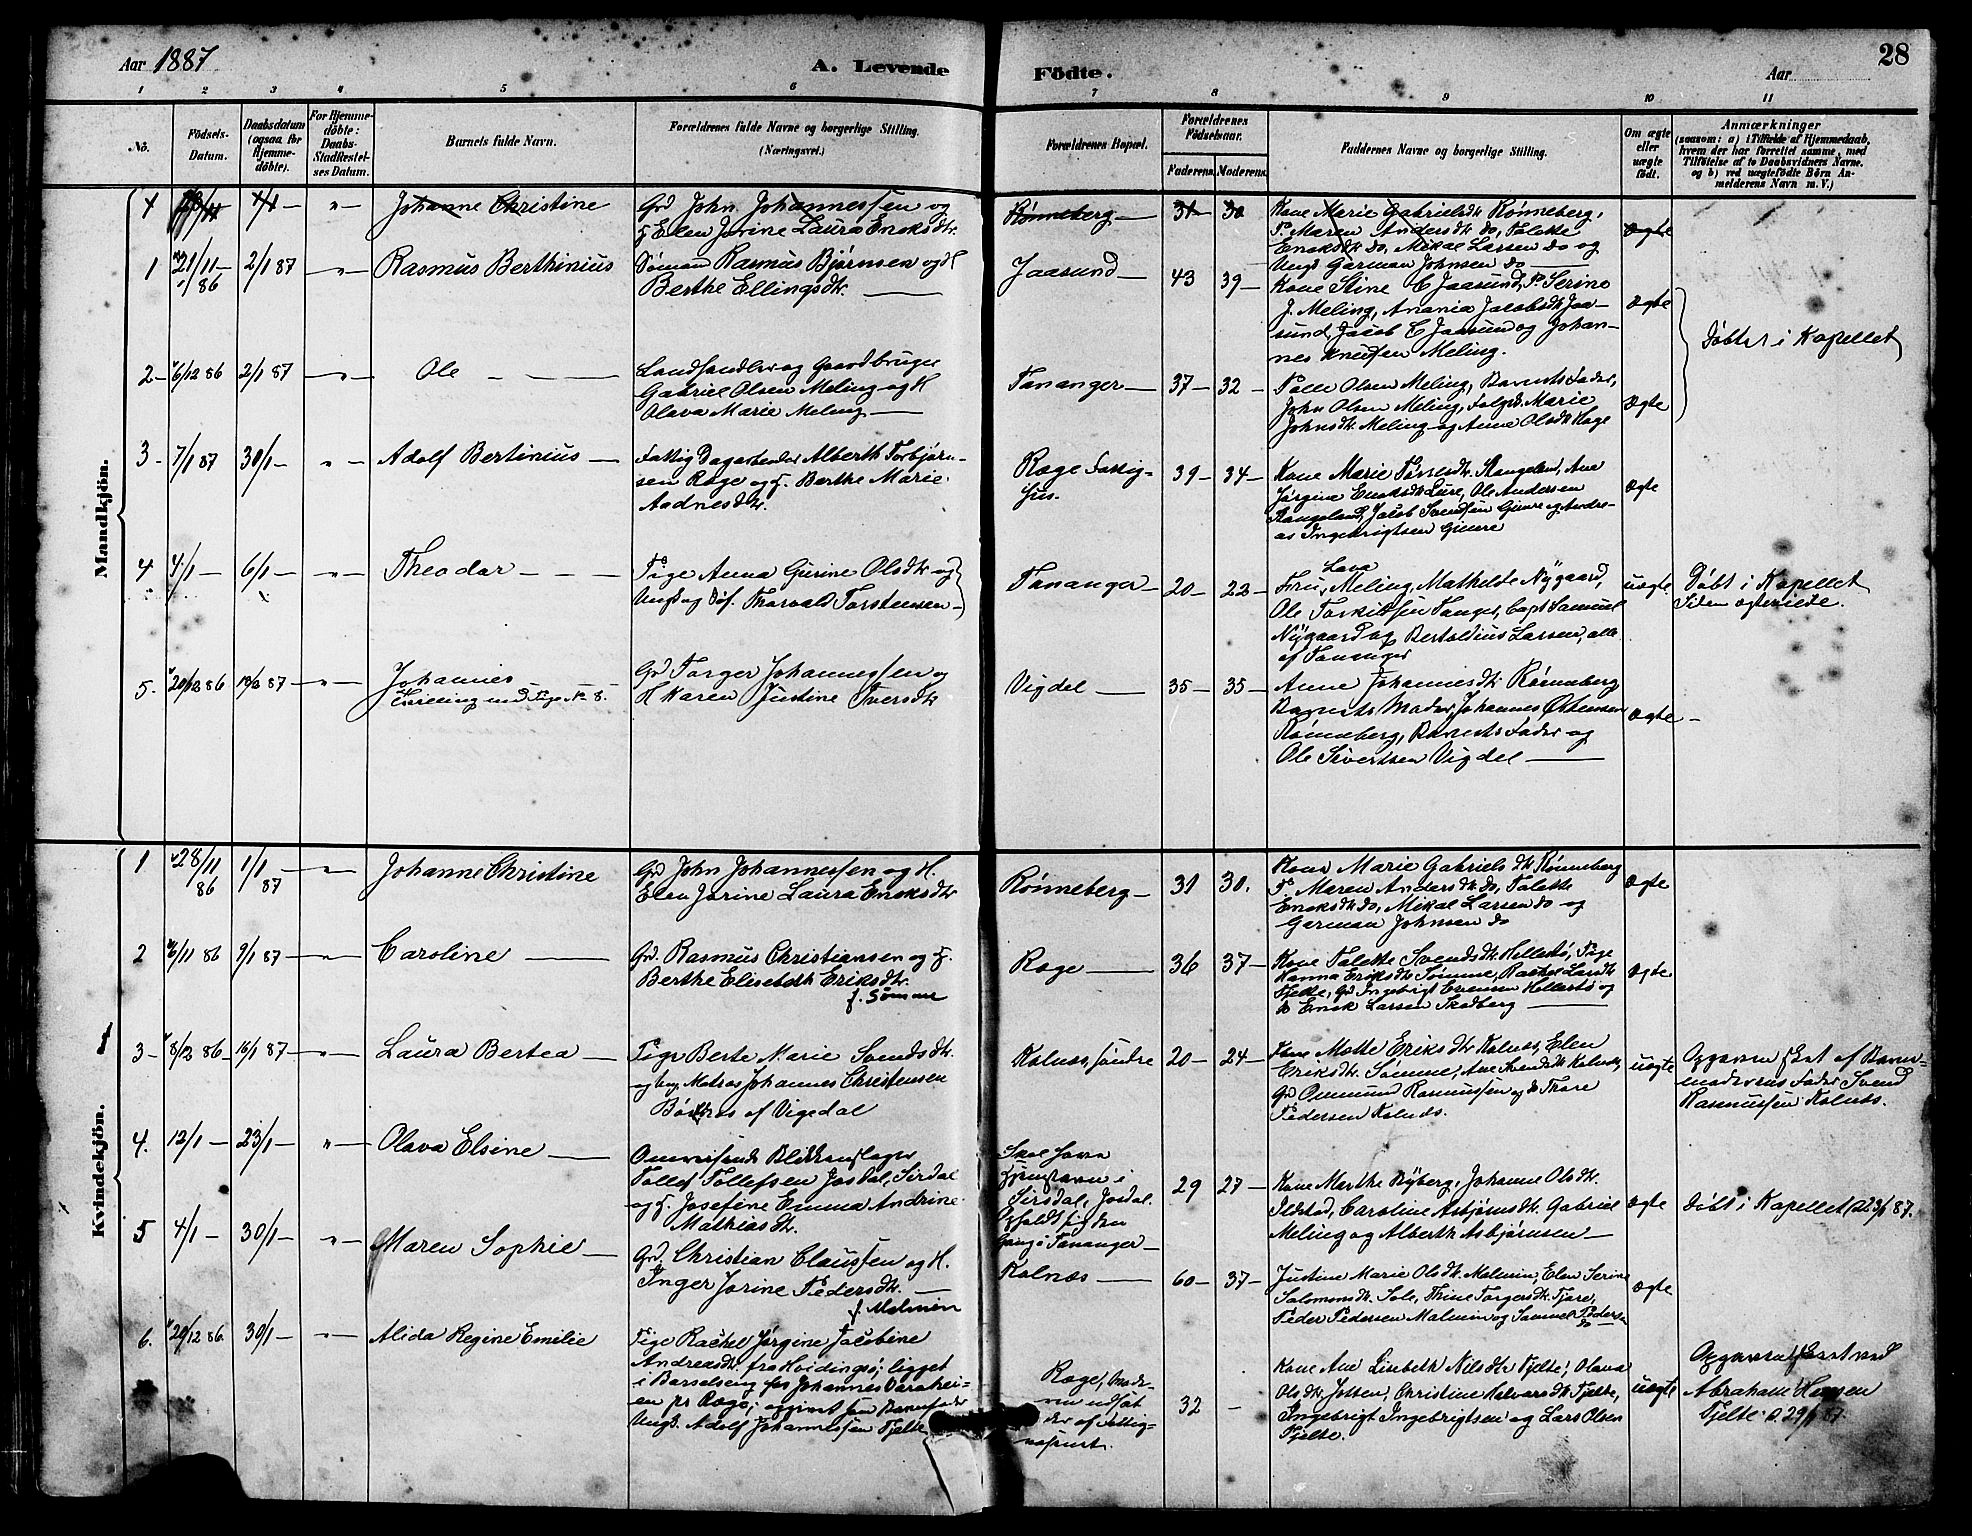 Aar 1887
A. Levende
Födte.
Aar
28
1 2 3 4 5 6 7 8 9 10 11
No.
Födsels-Datum.
Daabsdatum (ogsaa for Hjemme-döbte).
For Hjemme-döbte: Daabs-Stadfæstel-ses Datum.
Barnets fulde Navn.
Forældrenes fulde Navne og borgerlige Stilling. (Næringsvei.)
Forældrenes Bopæl.
Forældrenes Födselsaar.
Faderens. Moderens.
Faddernes Navne og borgerlige Stilling.
Om ægte eller uægte födt.
Anmærkninger (saasom: a) i Tilfælde af Hjemmedaab, hvem der har forrettet samme, med Tilföielse af to Daabsvidners Navne. og b) ved uægtefödte Börn An-melderens Navn m. V.)
Mandkjön.
Johanne Christine
Gd John Johannessen og
H Elen Jorine Laura Enoksdtr.
Rønneberg — 31 — 30
Kone Marie Gabrielsdtr Rønneberg,
P. Maren Andersdtr do, Talette
Enoksdtr do, Mikal Larsen do og
Ungk Garman Johnsen do
ægte
1 21/11 — 86 2/1 87 — " —
Rasmus Berthinius
Sømand Rasmus Bjørnsen og H
Berthe Ellingsdtr.
Jaasund — 43 39 —
Kone Stine E Jaasund, P. Serine
J. Meling, Anania Jacobsdtr Jaa-
sund, Jacob E Jaasund og Johan-
nes Knudsen Meling.
ægte
Døbte i Kapellet
2 — 6/12 86 2/1 87 — " —
Ole
Landhandler og Gaardbruger
Gabriel Olsen Meling og H
Olava Marie Meling.
Tananger — 37 — 32 —
Tolle Olsen Meling, Barnets Fader,
John Olsen Meling, Marie
Johnsdtr. Meling og Anna Olsdtr Hage
ægte
3 — 7/1 87 30/1 — " —
Adolf Bertinius —
Fattig Dagarbeider Alberth Torbjørn-
sen Røge og H. Berthe Marie
Aadnesdtr.
Røge Fattig-
hus.
39 — 34 —
Kone Marie Tørresdtr. Stangeland, Ane
Jørgine Enoksdtr Lure, Ole Andersen
Stangeland, Jacob Svendsen Gimre og Andre-
as Ingebrigtsen Gimre
ægte
4 4/1 — 6/1 — — " —
Theodor
Pige Anna Gurine Olsdtr og
Ungk og Søf. Thorvald Torstensen —
Tananger — 20 — 22 —
Lava
Fru Meling, Mathilde Nygaard,
Ole Torkildsen Tanger, Capt Samuel
Nygaard og Bertoldius Larsen, alle
af Tananger
uægte
Døbt i Kapellet
Siden ægteviede.
5. 20/12 86 13/2 87 — " —
Johannes
Tvilling med Pige No 8.
Gd Torger Johannessen og
H Karen Justine Iversdtr
Vigdel — 35 — 35 —
Anne Johannesdtr Rønneberg
Barnets Moder, Johannes Østensen
Rønneberg, Barnets Fader og
Ole Sivertsen Vigdel —
ægte —
Kvindekjön.
1 28/11 86 1/1 87 — " —
Johanne Christine
Gd John Johannessen og H.
Elen Jorine Laura Enoksdtr
Rønneberg — 31 30.
Kone Marie Gabrielsdtr Rønneberg
P. Maren Andersdtr do, Talette
Enoksdtr do, Mikal Larsen do og
Garman Johnsen do
ægte
2 6/11 86 9/1 87 — " —
Caroline —
Gd. Rasmus Christiansen og H.
Berthe Elisebeth Eriksdtr.
f. Sømme
Røge — 36 37 —
Kone Talette Svendsdtr Hellestø, Pige
Hanna Eriksdtr Sømme, Rachel Larsdtr
Tjelte, Gd Ingebrigt Evensen Hellestø og
do Enok Larsen Skadberg —
ægte
3 — 8/12 86 — 16/1 87 — " —
Laura Bertea —
Pige Berte Marie Svendsdtr.
og Ung. Matros Johannes Christensen
Bø af Vigedal
Kolnæs, søndre 20 — 24 —
Kone Mette Eriksdtr Kolnæs, Elen
Eriksdtr. Sømme, Ane Svendsdtr Kolnæs,
Gd Ommund Rasmussen og do Thore
Pedersen Kolnæs.
uægte
Opgaven sket af Barne-
moderens Fader Svend
Rasmussen Kolnæs.
4. 12/1 — 23/1 — " —
Olava Elsine —
Omreisende Blikkenslager
Tollef Tollefsen Josdal, Sirdal
og H. Josefine Emma Andrine
Mathiasdtr.
Skal have
Hjemstavn i
Sirsdal, Josdal.
Opholdt sig den
Gang i Tananger —
29 27 —
Kone Marthe Ryberg, Johanne Olsdtr.
Ildstad, Caroline Asbjørnsdtr. Gabriel
Meling og Alberth Asbjørnsen —
ægte
Døbt i Kapellet 23/1 87.
5 4/1 — 30/1 — " —
Maren Sophie —
Gd. Christian Claussen og H.
Inger Jorine Pedersdtr. —
f. Malmin
Kolnæs — 60 — 37 —
Justine Marie Olsdtr. Malmin, Elen Serine
Salomonsdtr. Sole, Thine Torgersdtr. Tjora,
Peder Pedersen Malmin og Samuel Pedersen
do
ægte
6. 20/12 86 30/1 — " —
Alida Regine Emilie
Pige Rachel Jørgine Jacobine
Andreasdtr. fra Hvidingsø; ligget
i Barselseng hos Johannes
en pr Røge; opgivet som Barnefader
Ungk. Adolf Johannessen Tjelte
Røge, Mode-
ren udsat
der af Fattig-
væsenet.
32 —
Kone Ane Lisebeth Nilsdtr Tjelte, Olava
Olsdtr. Joften, Christine Halvarsdtr Tjelte,
Ingebrigt Ingebrigtsen og Lars Olsen
Tjelte.
uægte
Opgaven sket ved
Abraham Hansen
Tjelte d. 29/1 87.